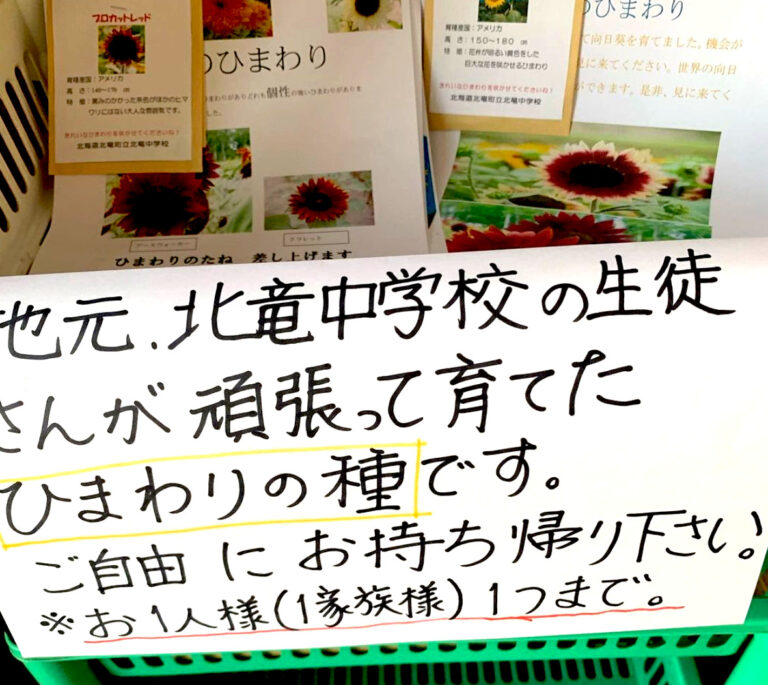 プロカットレッド
育種産国：アメリカ
高 さ：140～170 cm
特 徴：黒みのかかった茶色がほかのヒマ
ワリにはない大人な雰囲気です。
きれいなひまわりを咲かせてくださいね！
北海道北竜町立北竜中学校
のひまわり
まわりがありどれも個性の強いひまわりがありま
した。
アースウォーカー
クラレット
ひまわりのたね 差し上げます
育種産国：アメリカ
高 さ：150～180 cm
特 徴：花弁が明るい黄色をした
巨大な花を咲かせるひまわり
きれいなひまわりを咲かせてくださいね！
北海道北竜町立北竜中学校
のひまわり
て向日葵を育てました。機会が
見に来てください。世界の向日
ができます。是非、見に来てく
地元、北竜中学校の生徒
さんが頑張って育てた
ひまわりの種です。
ご自由にお持ち帰り下さい。
※お1人様(1家族様)1つまで。